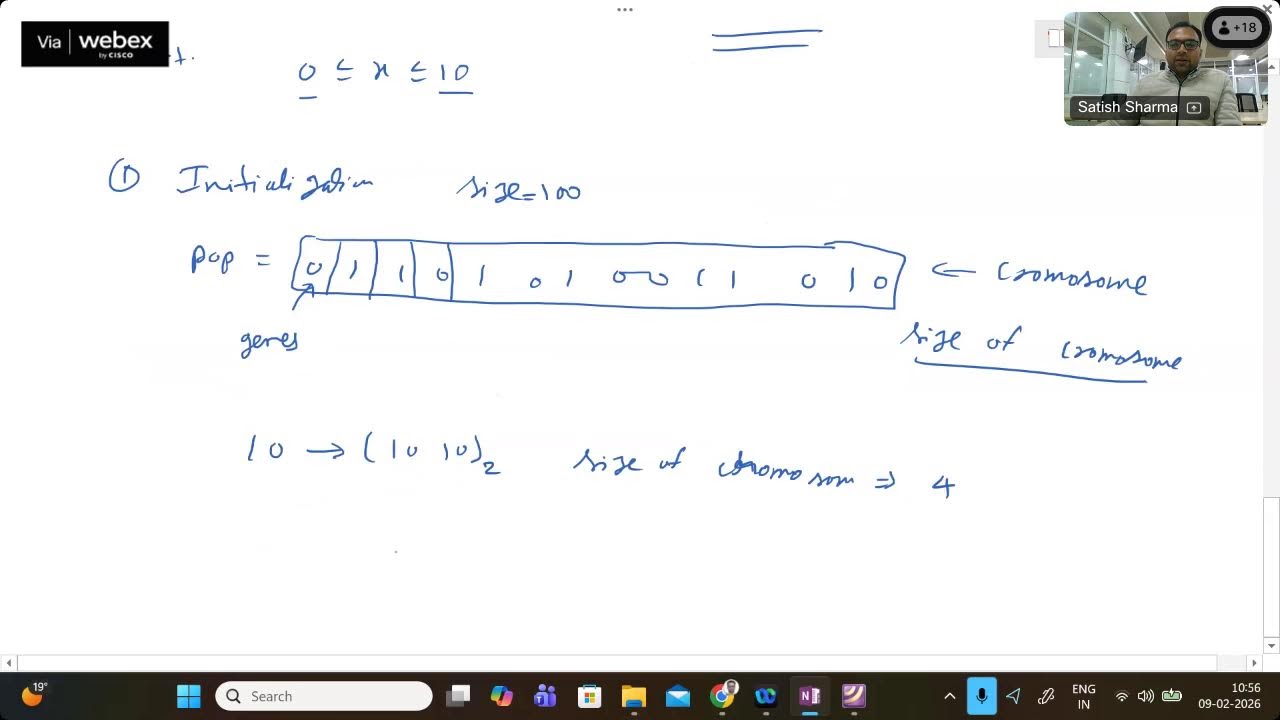 Via webex
by CISCO
t.
0 ≤ x ≤ 10
+18
Satish Sharma
① Initialization size=100
pop = 0 1 1 0 1 0 1 0 0 1 1 0 1 0 ← Cromosome
genes
size of cromosome
10 → (1010)₂ size of chromosom ⇒ 4
19°
Search
ENG
IN
10:56
09-02-2026